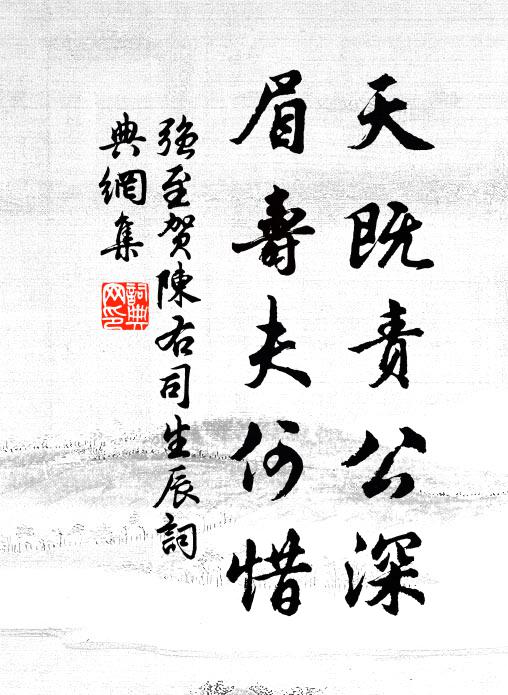 天既责公深
眉壽夫何惜
強至贺陳右司生辰詞
典網集
詞典
网印